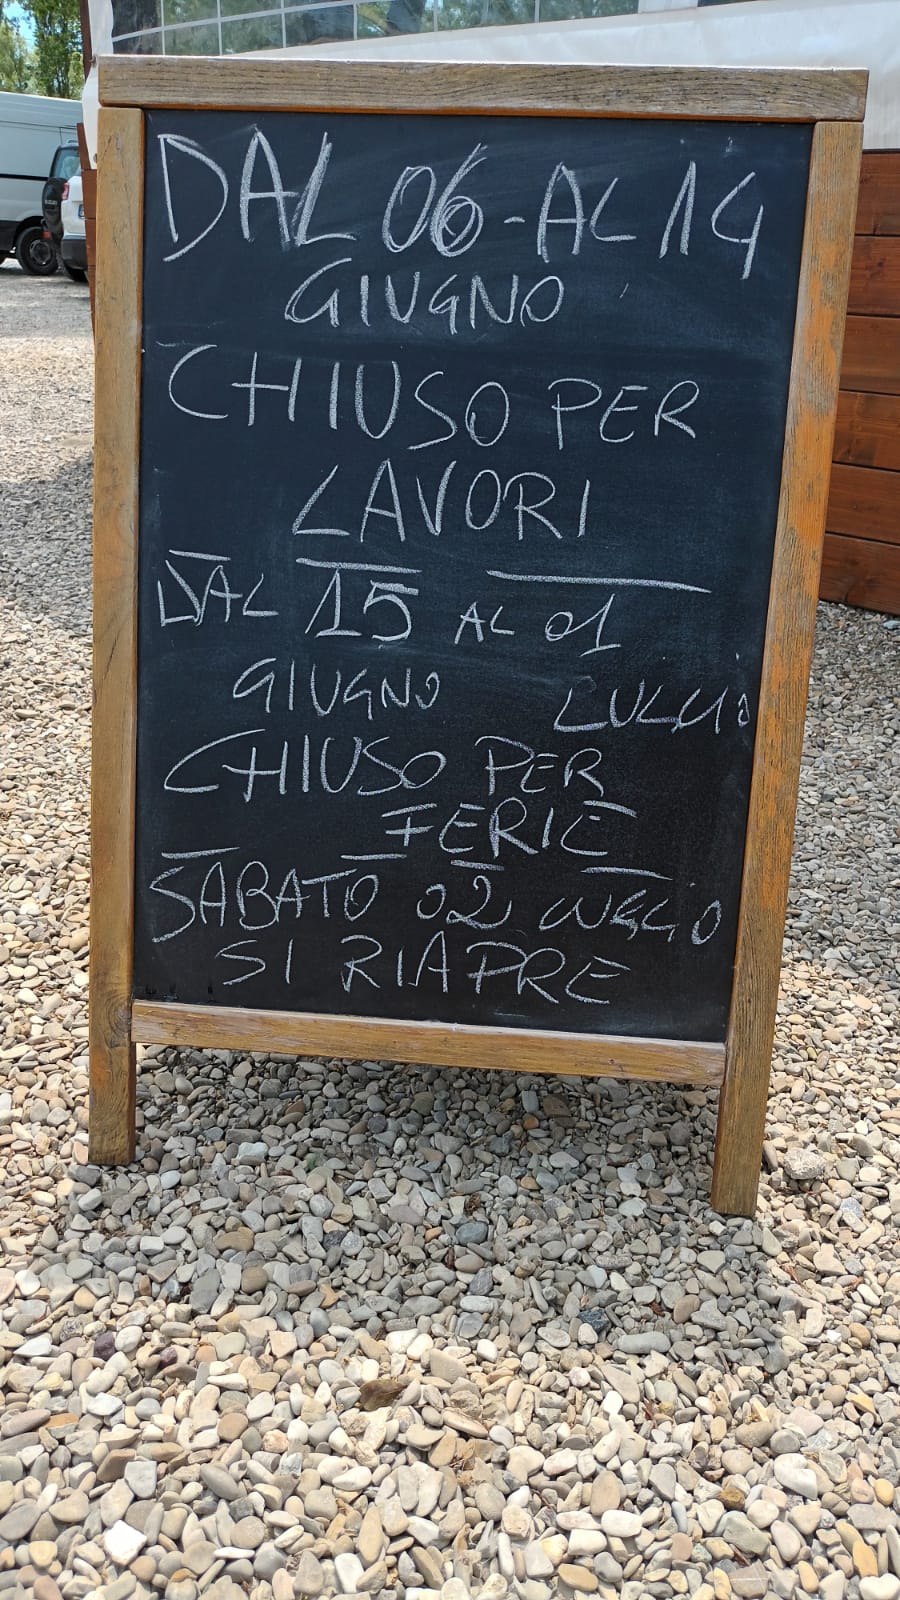 DAL 06-AL 14
GIUGNO
CHIUSO PER
LAVORI
DAL 15 AL 01
GIUGNO LUGLIO
CHIUSO PER
FERIE
SABATO 02 LUGLIO
SI RIAPRE